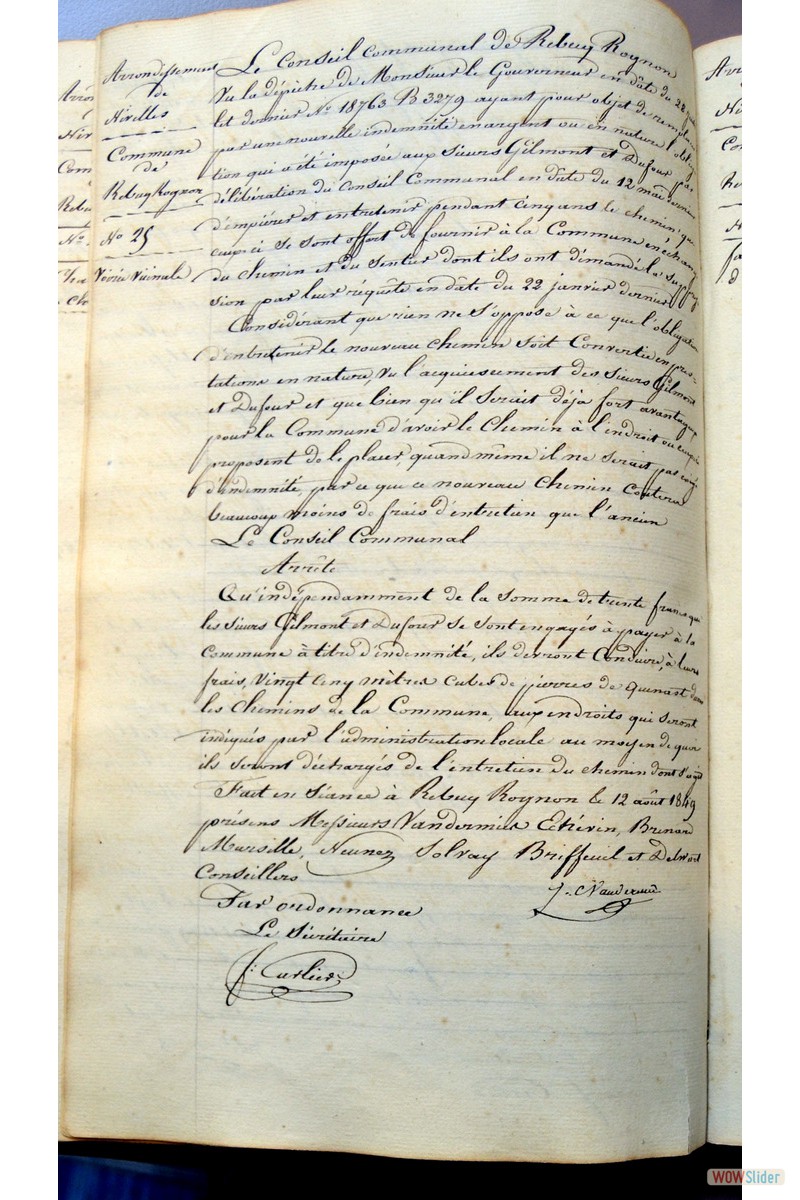 Arrondissement
de
Nivelles
Commune
de
Rebecq Rognon
No 25
Voirie Vicinale
Le Conseil Communal de Rebecq Rognon
Vu la dépêche de Monsieur le Gouverneur en date du 28 juil
let dernier No 18763 B 3279 ayant pour objet de remplacer
par une nouvelle indemnité en argent ou en nature l'obliga
tion qui a été imposée aux Sieurs Gilmont et Dufour par
délibération du Conseil Communal en date du 12 mai dernier
d'empierrer et entretenir pendant cinq ans le chemin que
ceux-ci se sont offert de fournir à la Commune en échange
du chemin et du sentier dont ils ont demandé la suppres
sion par leur réquête en date du 22 janvier dernier
Considérant que rien ne s'oppose à ce que l'obligation
d'entretenir le nouveau chemin soit Convertie en pres-
tations en nature, Vu l'acquiessement des Sieurs Gilmont
et Dufour et que bien qu'il serait déja fort avantageux
pour la Commune d'avoir le Chemin à l'endroit ou
proposent de le placer, quand même il ne serait pas
d'indemnité, par ce que ce nouveau Chemin Coutera
beaucoup moins de frais d'entretien que l'ancien
Le Conseil Communal
Arrête
Qu'indépendamment de la Somme de trente francs que
les Sieurs Gilmont et Dufour se sont engagés à payer à la
Commune à titre d'indemnité, ils devront Conduire, à leurs
frais, Vingt Cinq mètres Cubes de pierres de Quenast dans
les Chemins de la Commune, aux endroits qui seront
indiqués par l'administration locale au moyen de quoi
ils seront déchargés de l'entretien du chemin dont s'agit
Fait en Séance à Rebecq Rognon le 12 août 1849
présens Messieurs Vandermies Echevin,
Marsille, Neunez Solvay Briffeuil et Delwart
Conseillers
Par ordonnance
Le Sécrétaire
Carlier
WOWSlider